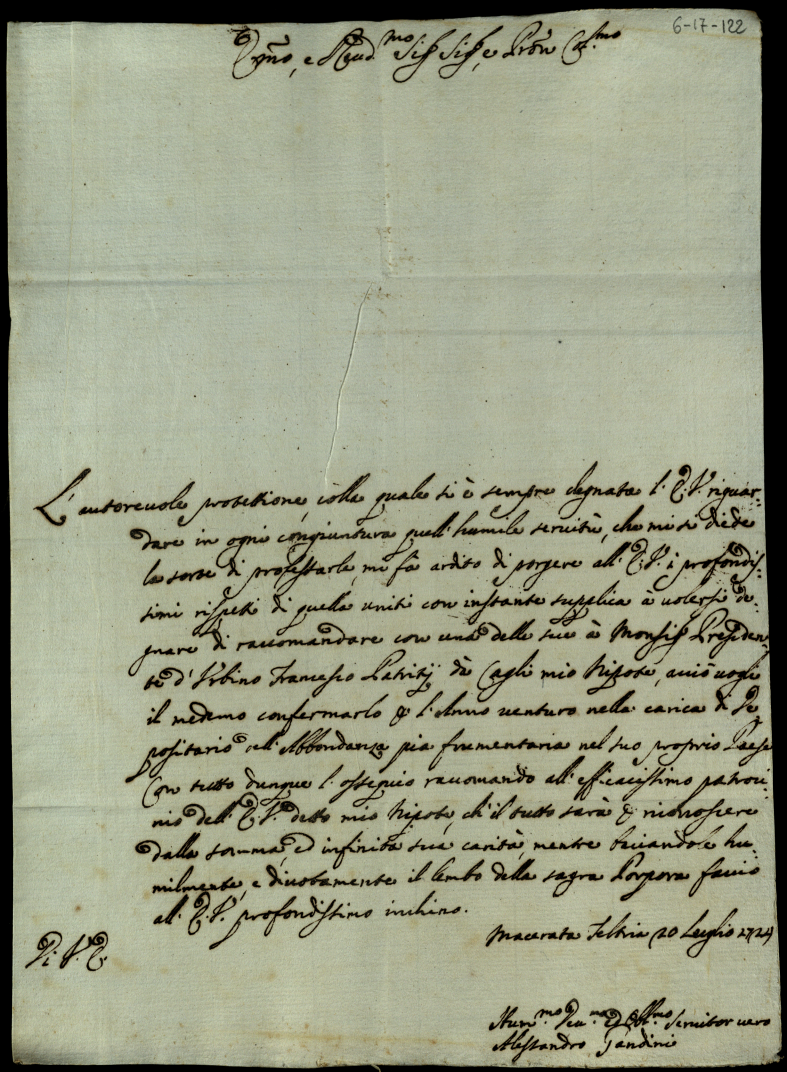 6-17-122
Em̃o, e Reud.mo Sig.r Sig.r, e Prõn Col.mo
L'autoreuole protettione, colla quale si è sempre degnata l'E.V. riguar-
dare in ogni congiuntura quell'humile seruitù, che mi si diede
la sorte di professarle, mi fà ardito di porgere all'E.V. i profondis-
simi rispeti di quella uniti con instante supplica à volersi de-
gnare di raccomandare con una delle sue à Monsig.r Presiden-
te d'Vrbino Francesco Patritij da Cagli mio Nipote, acciò uogli
il medemo confermarlo p l'Anno venturo nella carica di De
positario dell'Abbondanza pia frumentaria nel suo proprio Paese
Con tutto dunque l'ossequio raccomando all'efficacissimo patroci-
nio dell'E.V. detto mio Nipote, ch'il tutto sarà p riconoscere
dalla somma, ed infinita sua carità, mentre baciandole hu-
milmente, e diuotamente il lembo della sagra Porpora faccio
all'E.V. profondissimo inchino.
Macerata Feltria 20 Luglio 1724
Di V.E.
Hum.mo Deu.mo Obl.mo Seruitor uero
Alessandro Gandini